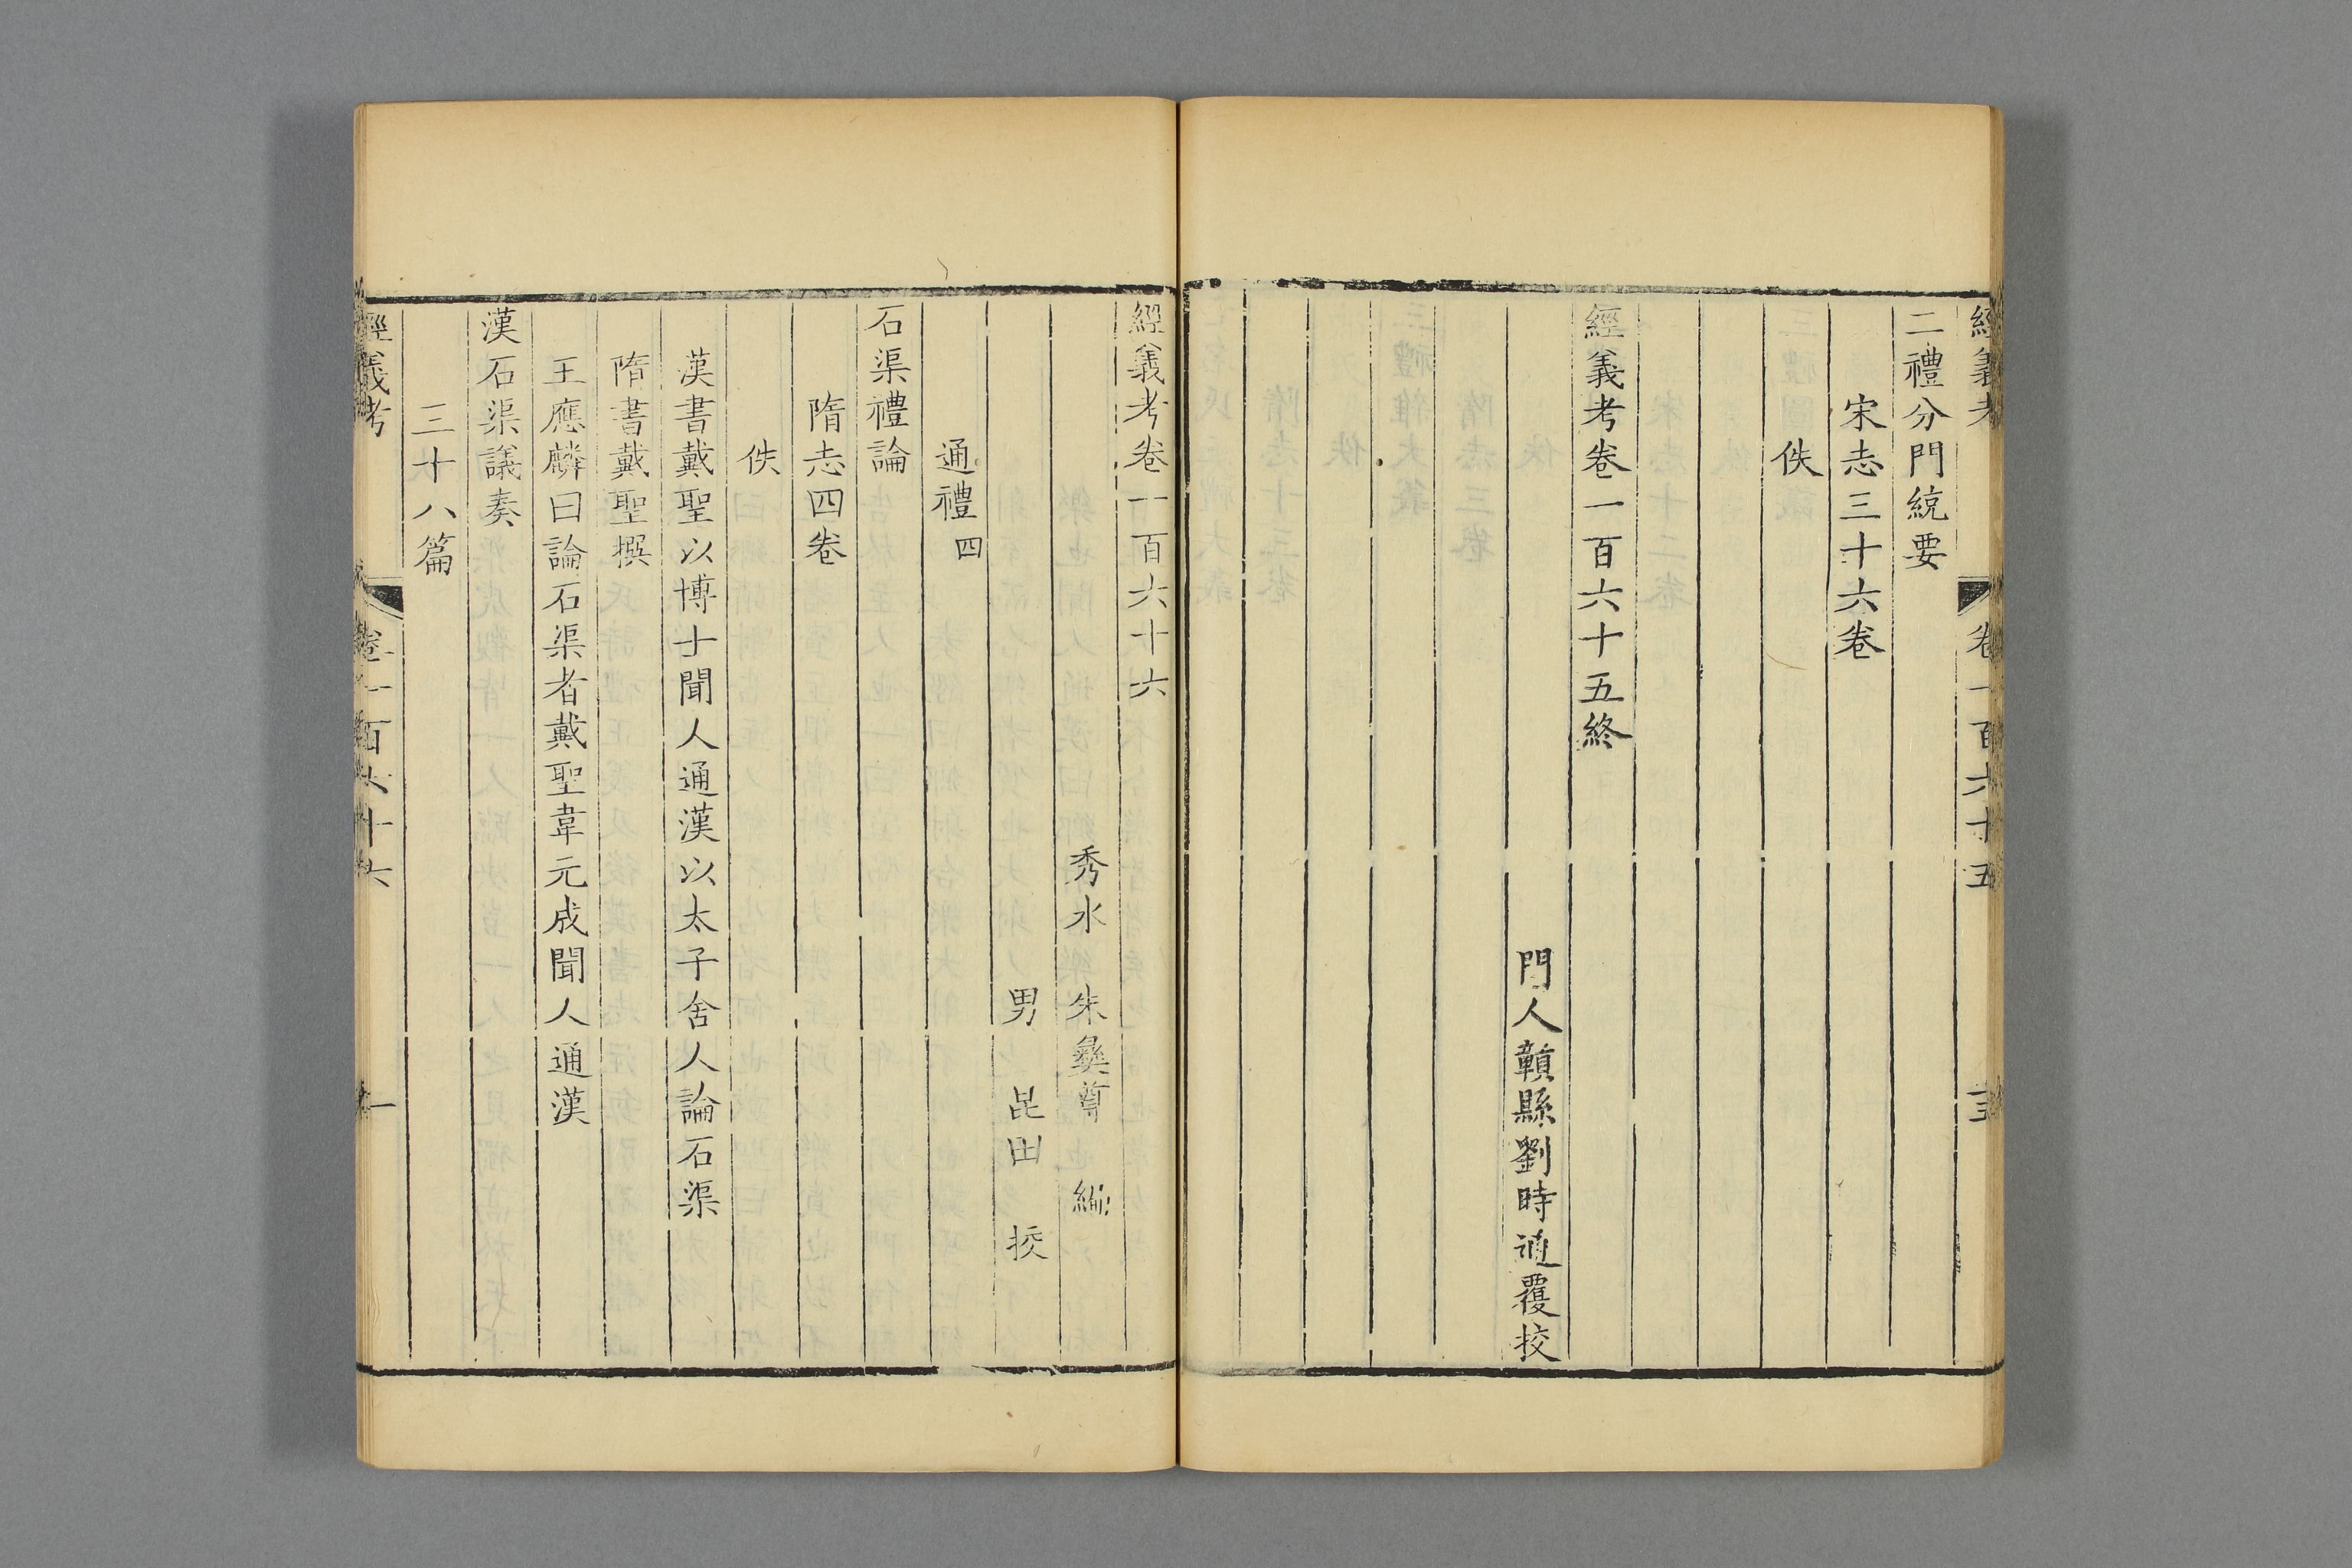 經義考 卷一百六十五
二禮分門統要
宋志三十六卷
佚
經義考卷一百六十五終
門人贑縣劉時逈覆挍
經義考卷一百六十六
秀水 朱彝尊 編
男 昆田 挍
通禮四
石渠禮論
隋志四卷
佚
漢書戴聖以博士聞人通漢以太子舍人論石渠
隋書戴聖撰
王應麟曰論石渠者戴聖韋元成聞人通漢
漢石渠議奏
三十八篇
經義考 卷一百六十六 一